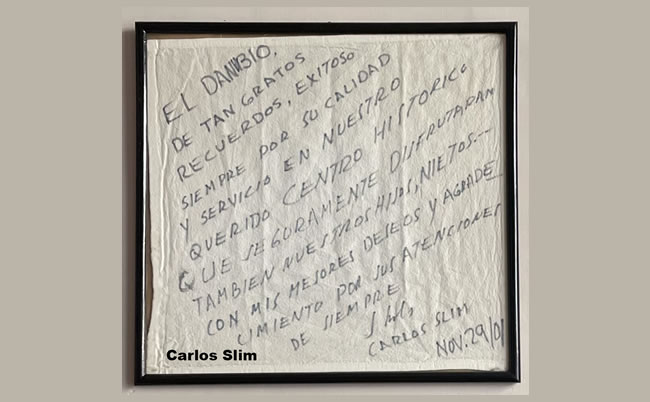 EL DANUBIO.
DE TAN GRATOS
RECUERDOS, EXITOSO
SIEMPRE POR SU CALIDAD
Y SERVICIO EN NUESTRO
QUERIDO CENTRO HISTORICO
QUE SEGURAMENTE DISFRUTARAN
TAMBIEN NUESTROS HIJOS, NIETOS.--
CON MIS MEJORES DESEOS Y AGRADE
CIMIENTO POR SUS ATENCIONES
DE SIEMPRE
CARLOS SLIM
NOV. 29/01
Carlos Slim